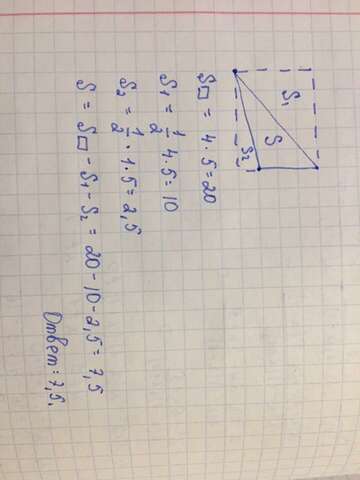 S₁
S
S₂
S□ = 4 · 5 = 20
S₁ = 1/2 4 · 5 = 10
S₂ = 1/2 · 1 · 5 = 2,5
S = S□ - S₁ - S₂ = 20 - 10 - 2,5 = 7,5
Ответ: 7,5.